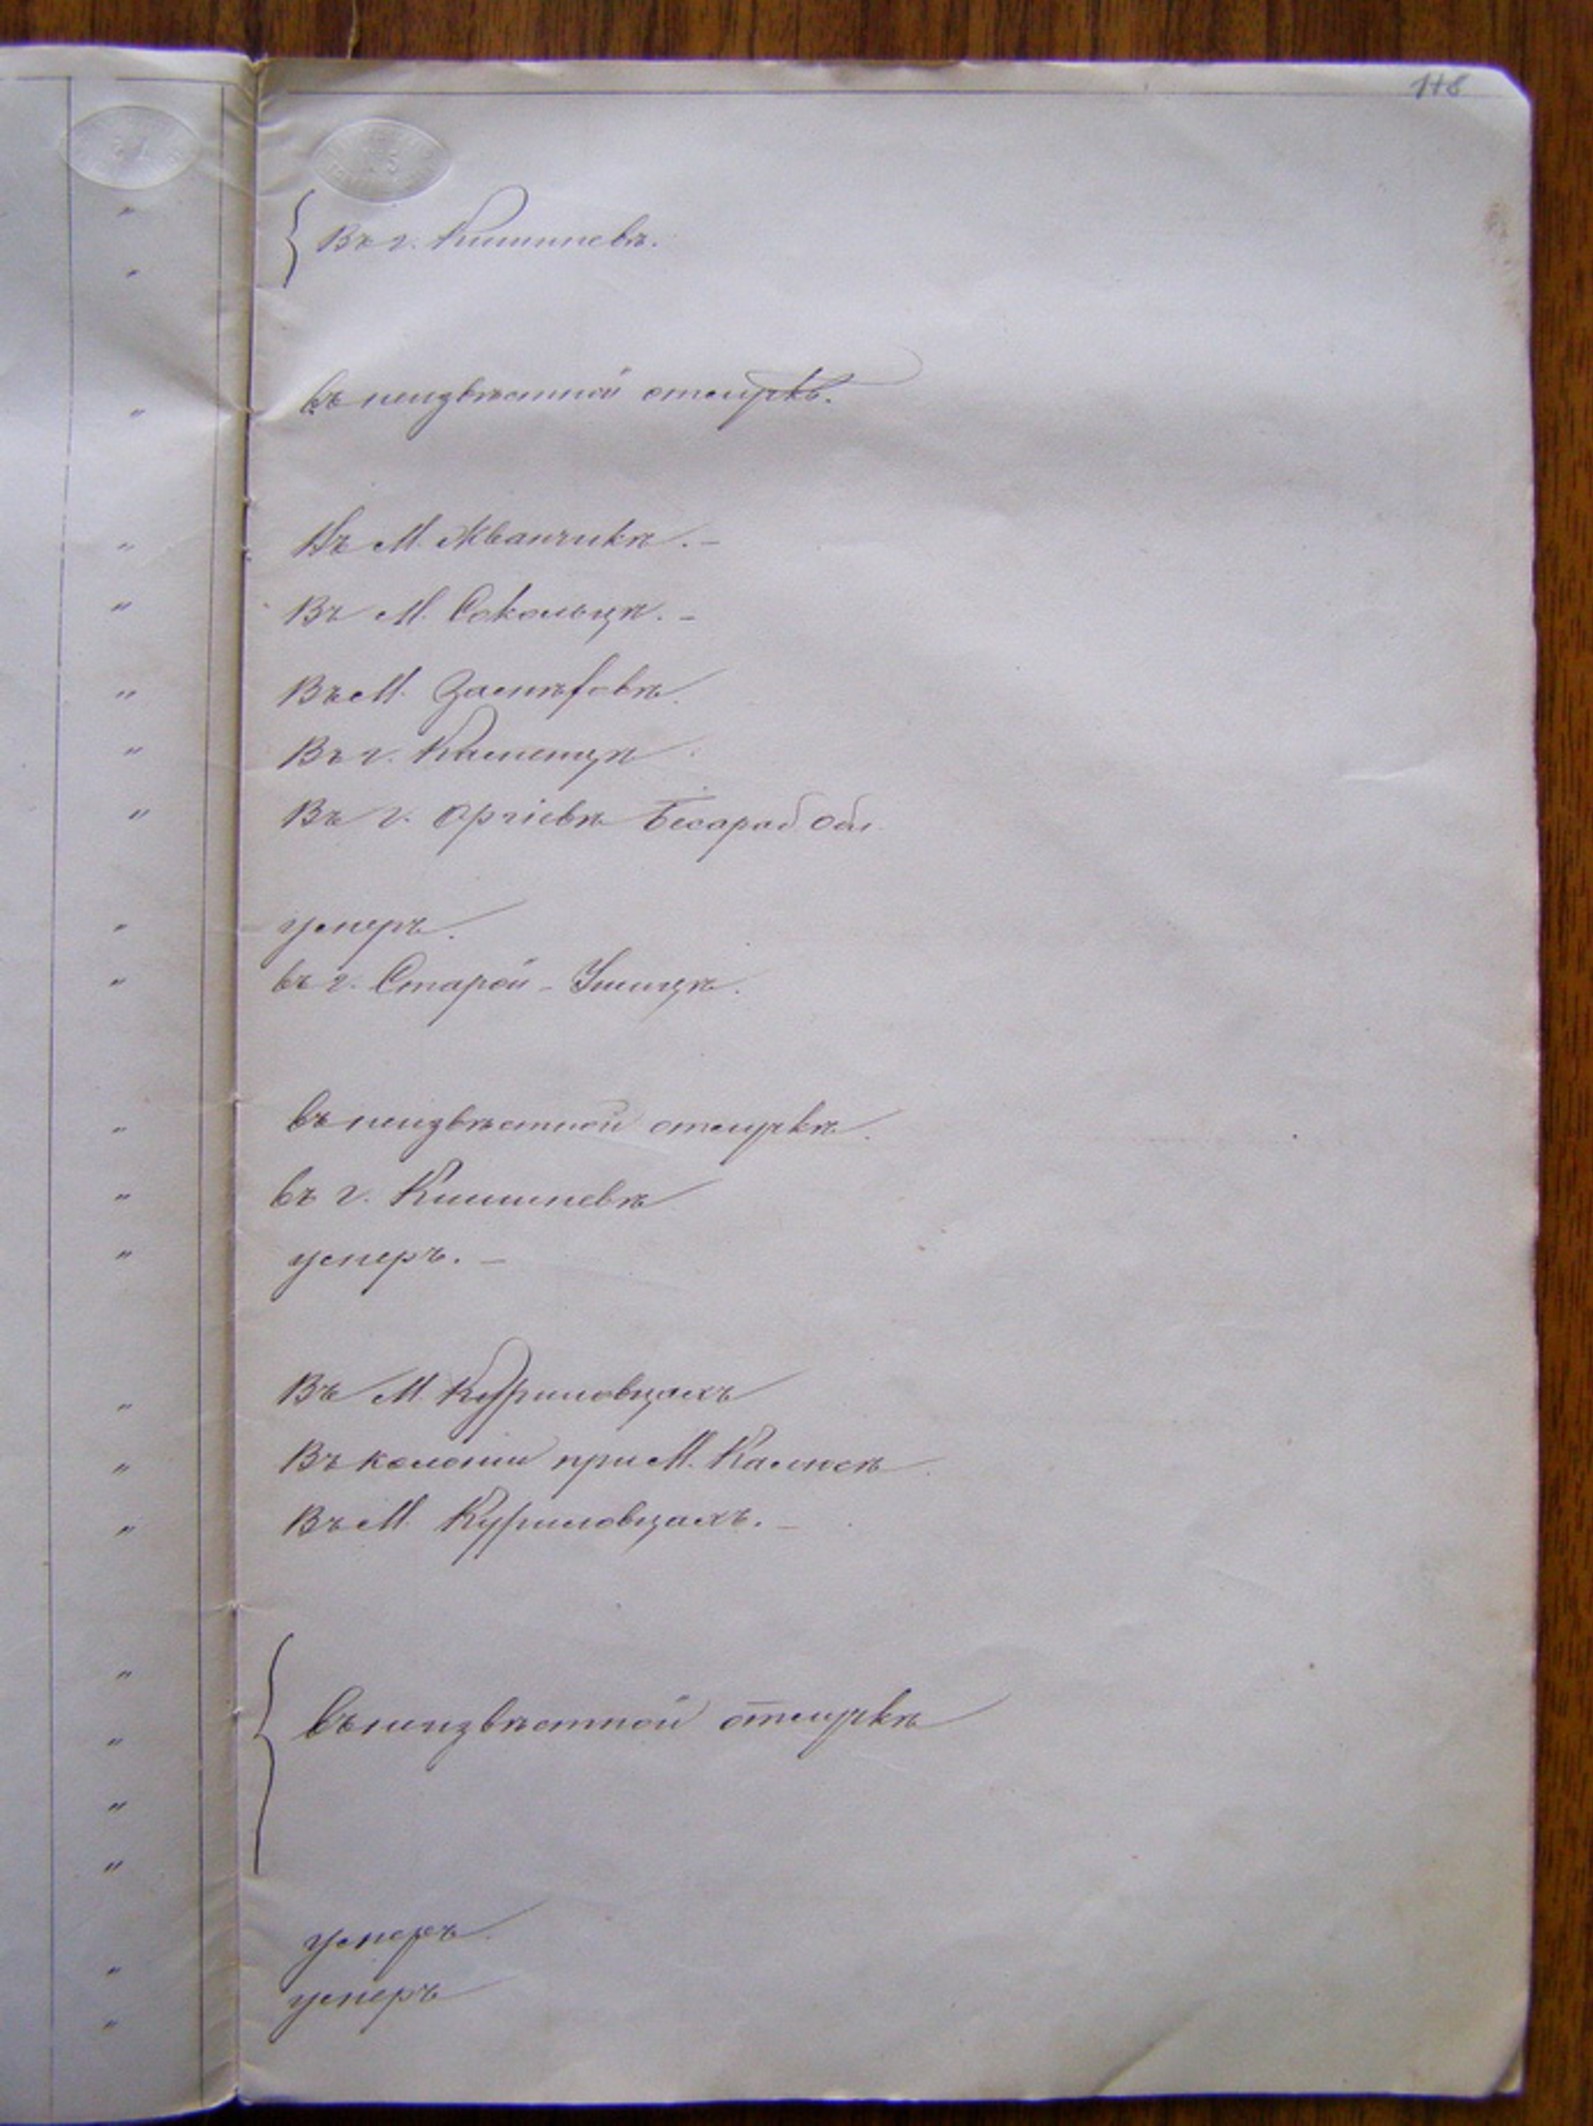 118
Въ г. Кишиневѣ.
въ неизвѣстной отлучкѣ.
Въ М. Жванчикѣ. –
Въ М. Сокольцѣ. –
Въ М.
Въ г. Каменцѣ
Въ г. Оргіевѣ Бесараб Обл.
умеръ.
въ г. Старой - Ушицѣ.
въ неизвѣстной отлучкѣ.
въ г. Кишиневѣ
умеръ. –
Въ М. Куриловцахъ
Въ колоніи при М. Калюсѣ
Въ М. Куриловцахъ. –
въ неизвѣстной отлучкѣ
умеръ.
умеръ